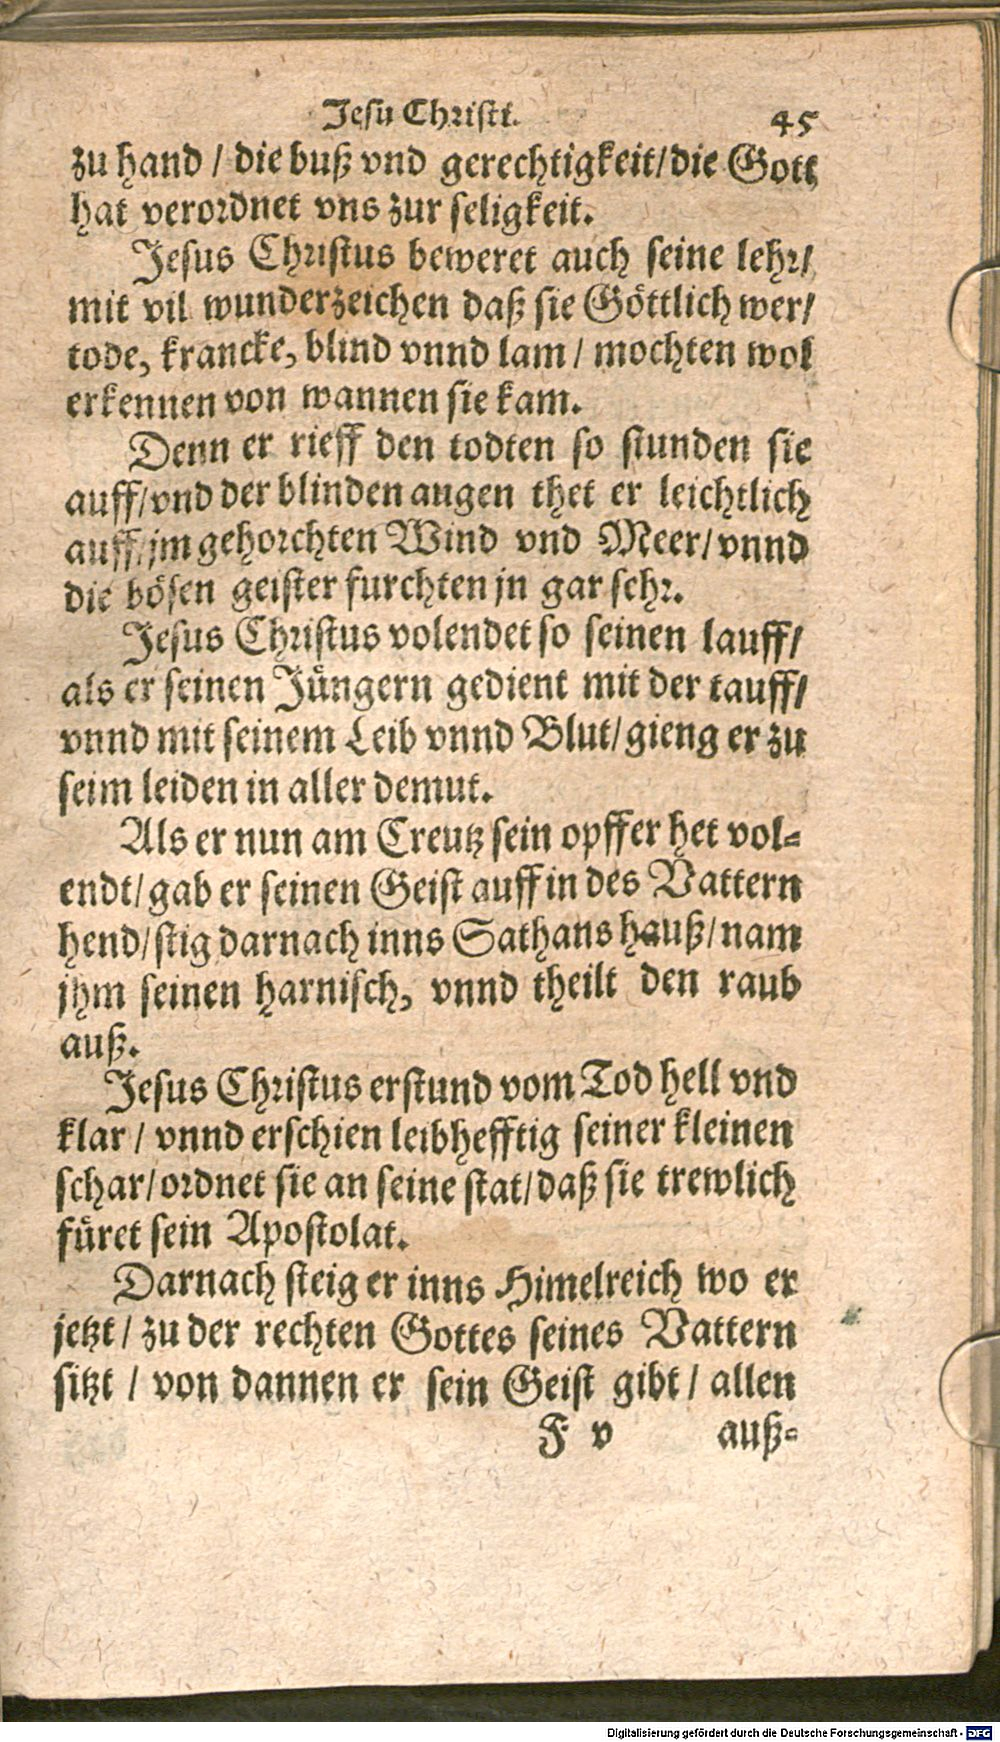 Jesu Christi. 45
zu hand / die buß vnd gerechtigkeit/die Gott
hat verordnet vns zur seligkeit.
Jesus Christus beweret auch seine lehr/
mit vil wunderzeichen daß sie Göttlich wer/
tode, krancke, blind vnnd lam / mochten wol
erkennen von wannen sie kam.
Denn er rieff den todten so stunden sie
auff/vnd der blinden augen thet er leichtlich
auff/jm gehorchten Wind vnd Meer/vnnd
die bösen geister furchten jn gar sehr.
Jesus Christus volendet so seinen lauff/
als er seinen Jüngern gedient mit der tauff/
vnnd mit seinem Leib vnnd Blut/gieng er zu
seim leiden in aller demut.
Als er nun am Creutz sein opffer het vol-
endt/gab er seinen Geist auff in des Vattern
hend/stig darnach inns Sathans hauß/nam
jhm seinen harnisch, vnnd theilt den raub
auß.
Jesus Christus erstund vom Tod hell vnd
klar / vnnd erschien leibhefftig seiner kleinen
schar/ordnet sie an seine stat/daß sie trewlich
füret sein Apostolat.
Darnach steig er inns Himelreich wo er
jetzt / zu der rechten Gottes seines Vattern
sitzt / von dannen er sein Geist gibt / allen
F v auß-
Digitalisierung gefördert durch die Deutsche Forschungsgemeinschaft - DFG